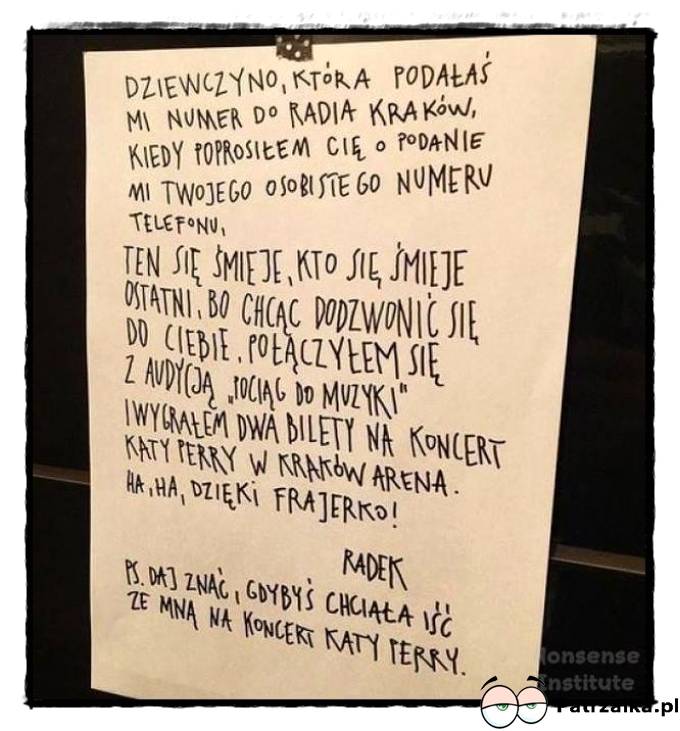 DZIEWCZYNO, KTÓRA PODAŁAŚ
MI NUMER DO RADIA KRAKÓW,
KIEDY POPROSIŁEM CIĘ O PODANIE
MI TWOJEGO OSOBISTEGO NUMERU
TELEFONU,
TEN SIĘ ŚMIEJE, KTO SIĘ ŚMIEJE
OSTATNI, BO CHCĄC DODZWONIĆ SIĘ
DO CIEBIE, POŁĄCZYŁEM SIĘ
Z AUDYCJĄ „POCIĄG DO MUZYKI"
I WYGRAŁEM DWA BILETY NA KONCERT
KATY PERRY W KRAKÓW ARENA.
HA, HA, DZIĘKI FRAJERKO!
RADEK
PS. DAJ ZNAĆ, GDYBYŚ CHCIAŁA IŚĆ
ZE MNĄ NA KONCERT KATY PERRY.
Nonsense
Institute
Patrzałka.pl